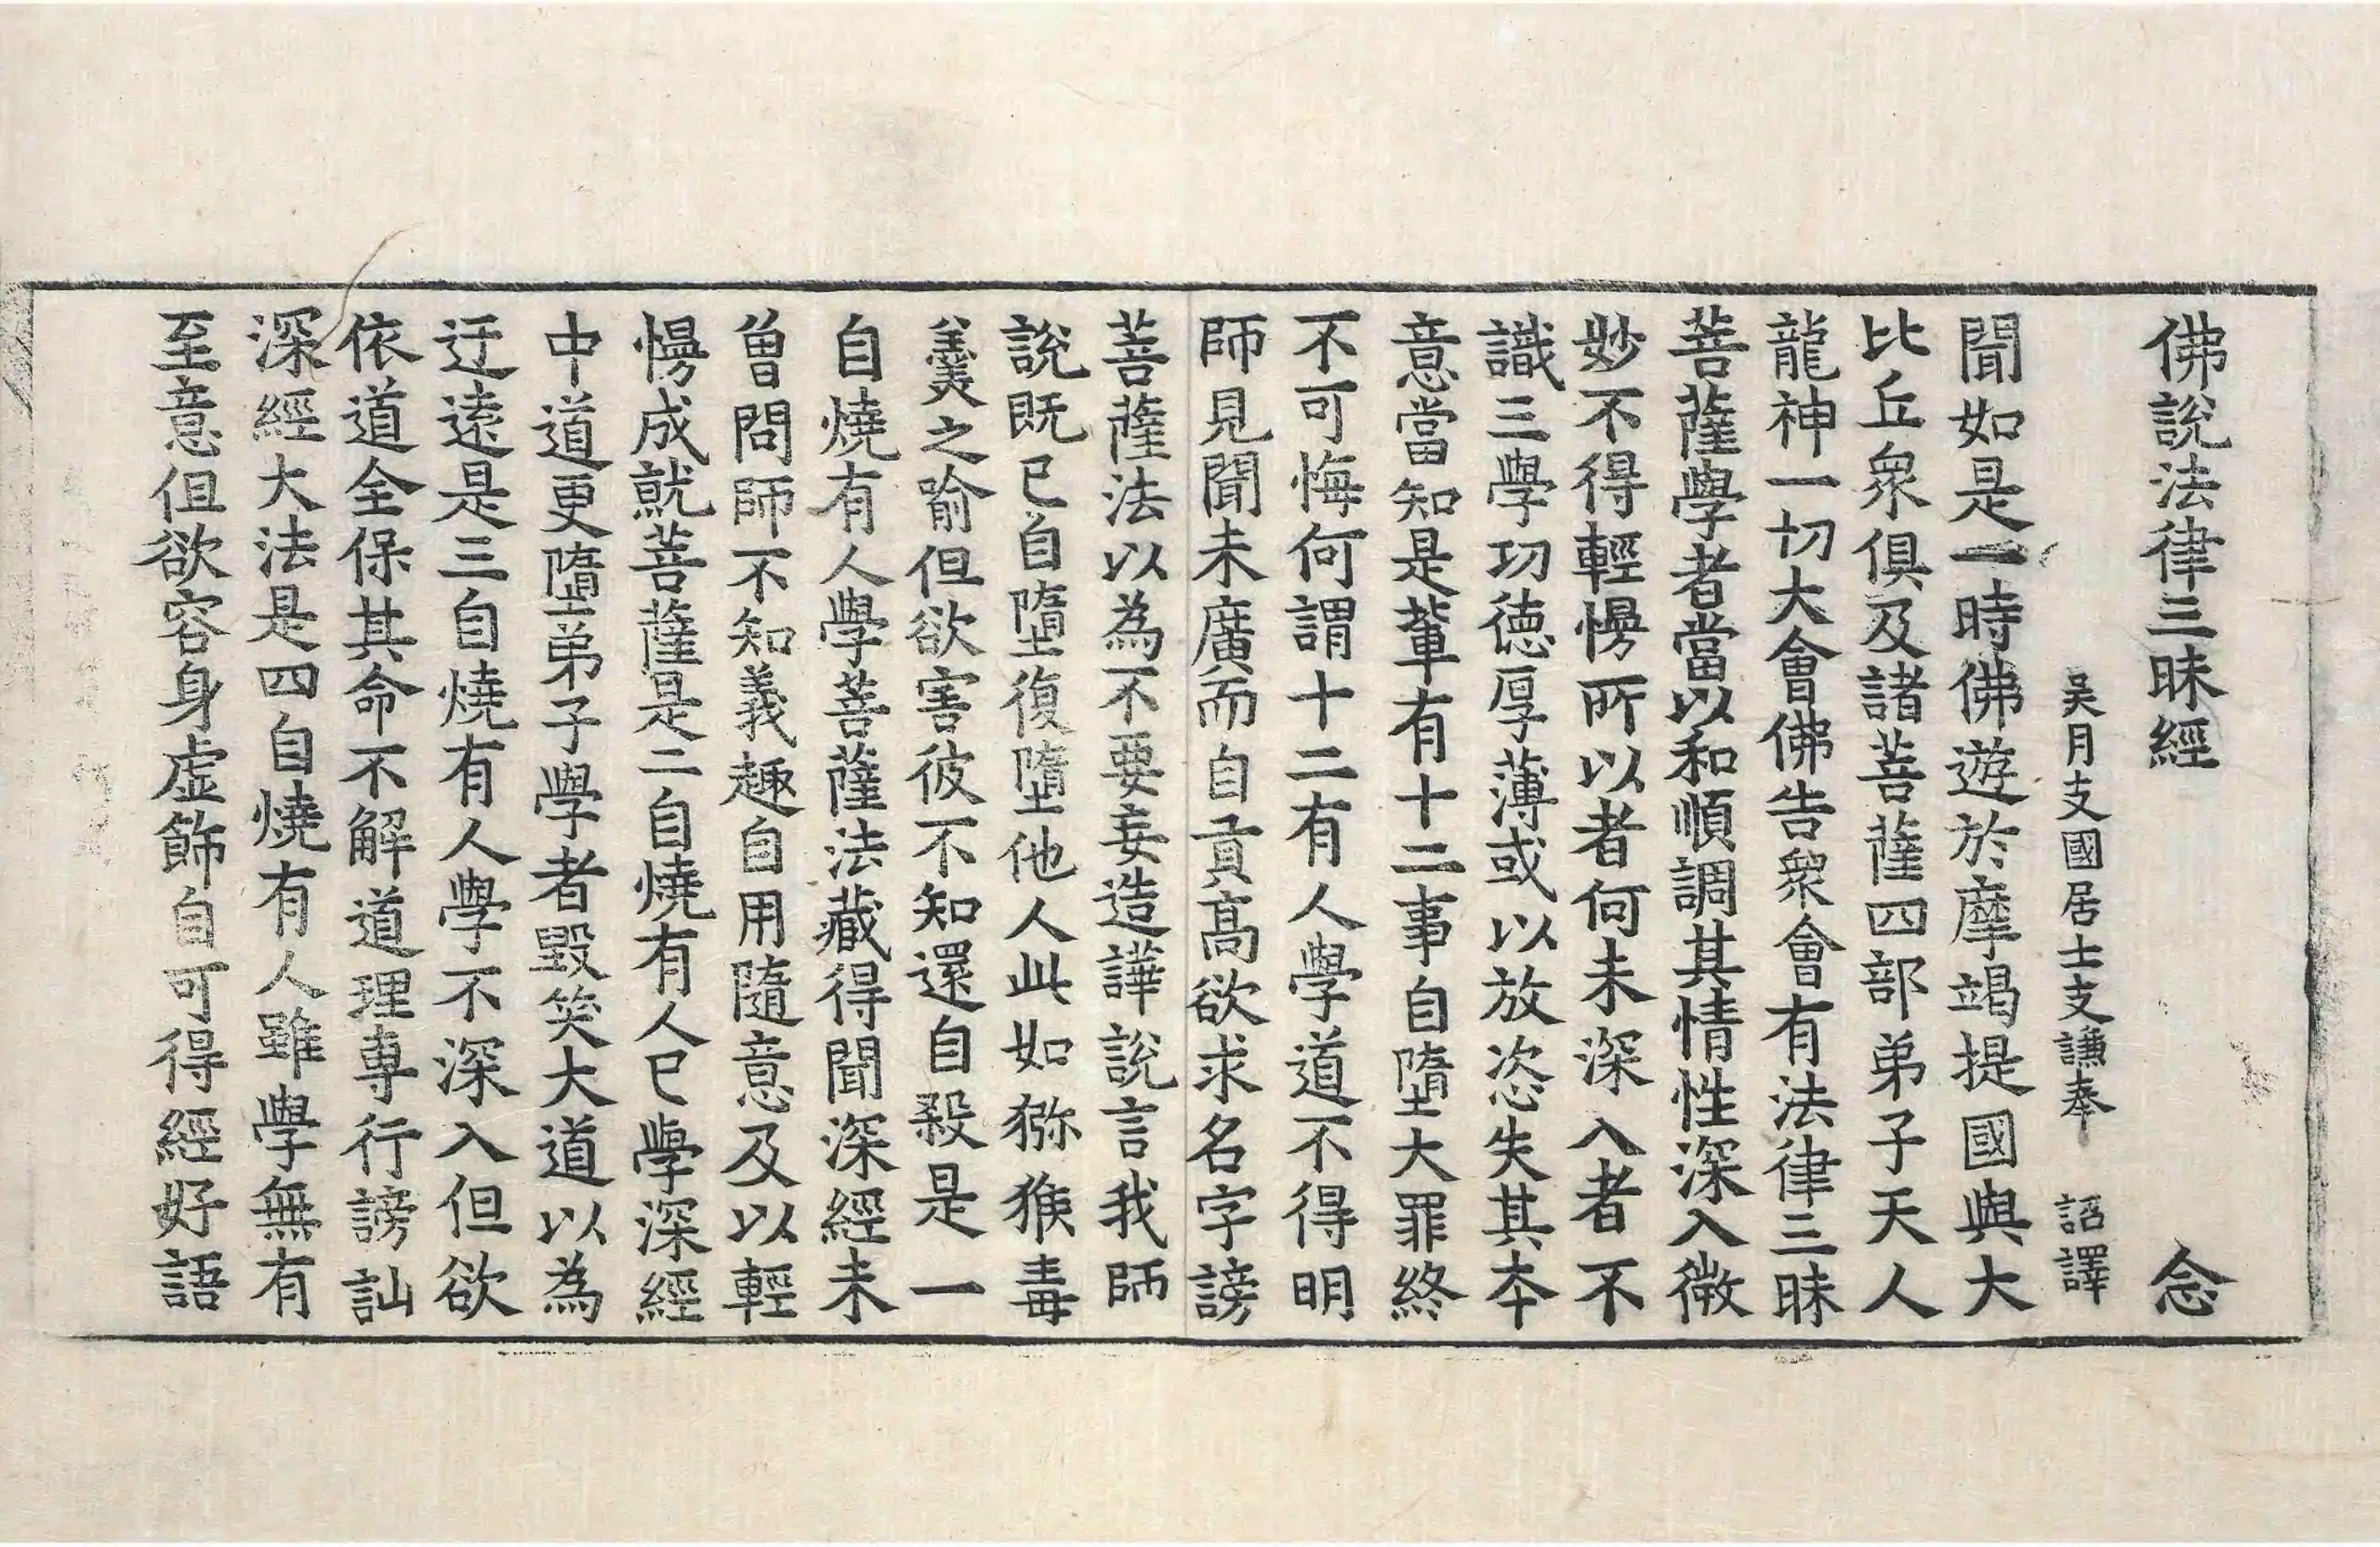 佛說法律三昧經 念
吳月支國居士支謙奉 詔譯
聞如是一時佛遊於摩竭提國與大
比丘衆俱及諸菩薩四部弟子天人
龍神一切大會佛告衆會有法律三昧
菩薩學者當以和順調其情性深入微
妙不得輕慢所以者何未深入者不
識三學功德厚薄或以放恣失其本
意當知是輩有十二事自墮大罪終
不可悔何謂十二有人學道不得明
師見聞未廣而自貢高欲求名字謗
菩薩法以為不要妄造譁說言我師
說既已自墮復墮他人此如獼猴毒
羹之喻但欲害彼不知還自殺是一
自燒有人學菩薩法藏得聞深經未
曾問師不知義趣自用隨意及以輕
慢成就菩薩是二自燒有人已學深經
中道更墮弟子學者毀笑大道以為
迂遠是三自燒有人學不深入但欲
依道全保其命不解道理專行謗訕
深經大法是四自燒有人雖學無有
至意但欲容身虛飾自可得經好語